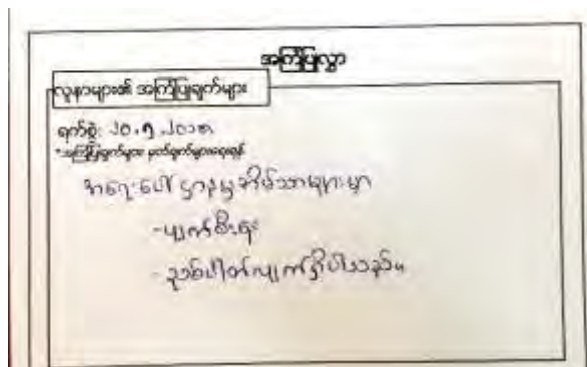 အကြံပြုလွှာ
လူနာများ၏ အကြံပြုချက်များ
ရက်စွဲ: ၂၀.၅.၂၀၁၈
*အကြံပြုချက်များ မှတ်ချက်များရေးရန်
အရေးပေါ်ဌာနမှ အိမ်သာများမှာ
-ပျက်စီး၍
- ညစ်ပါတ်လျက်ရှိပါသည်။